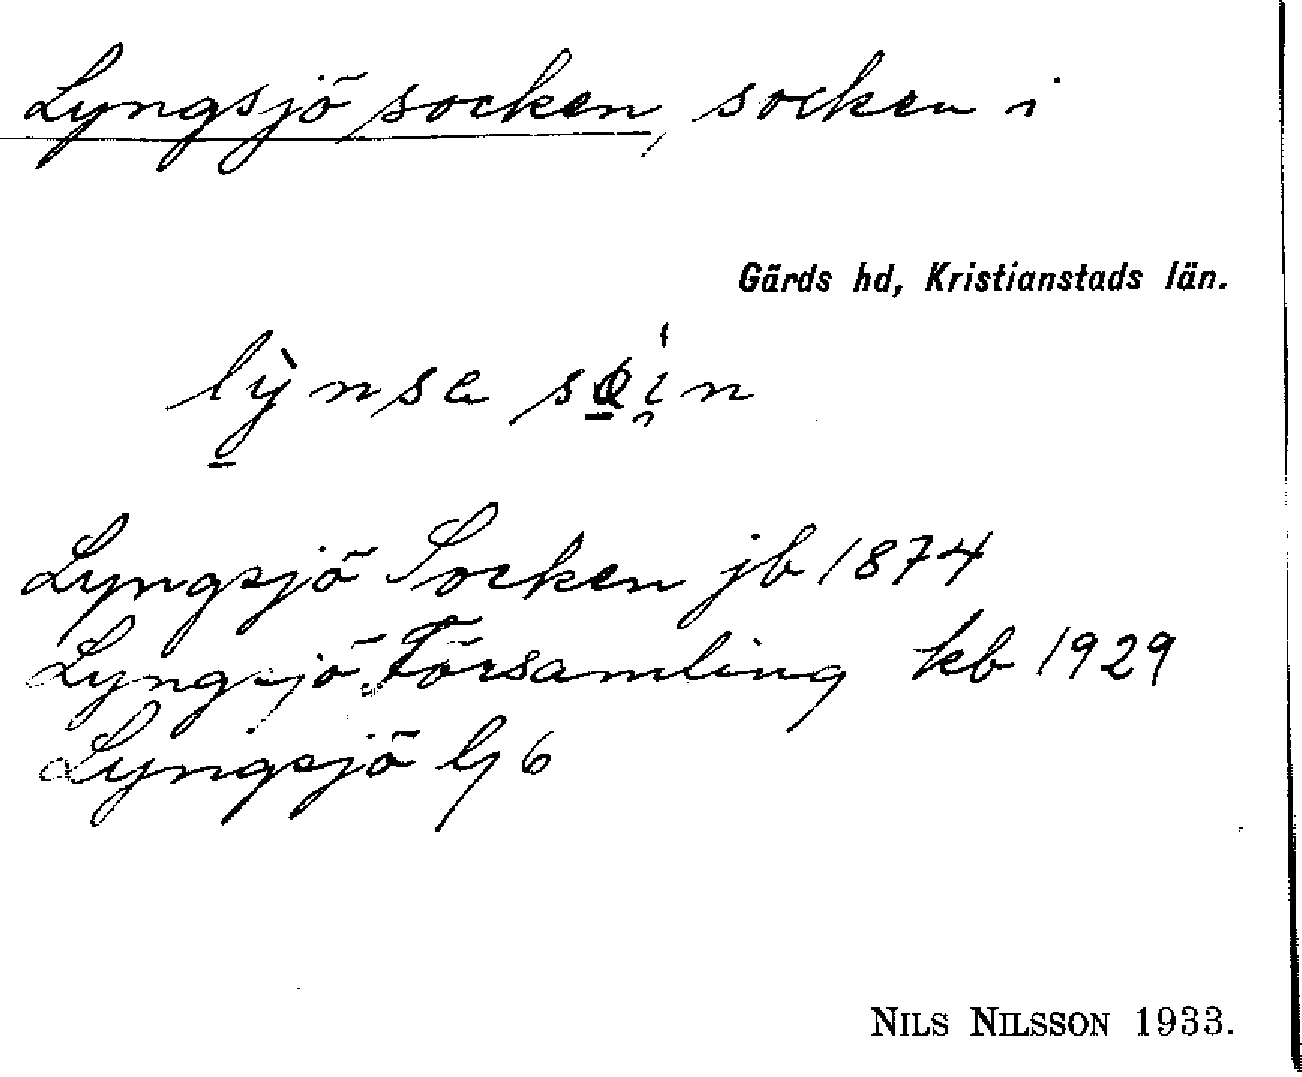 Lyngsjö socken, socken i
Gärds hd, Kristianstads län.
Lyngsjö Socken jb 1874
Lyngsjö Församling kb 1929
Lyngsjö
NILS NILSSON 1933.